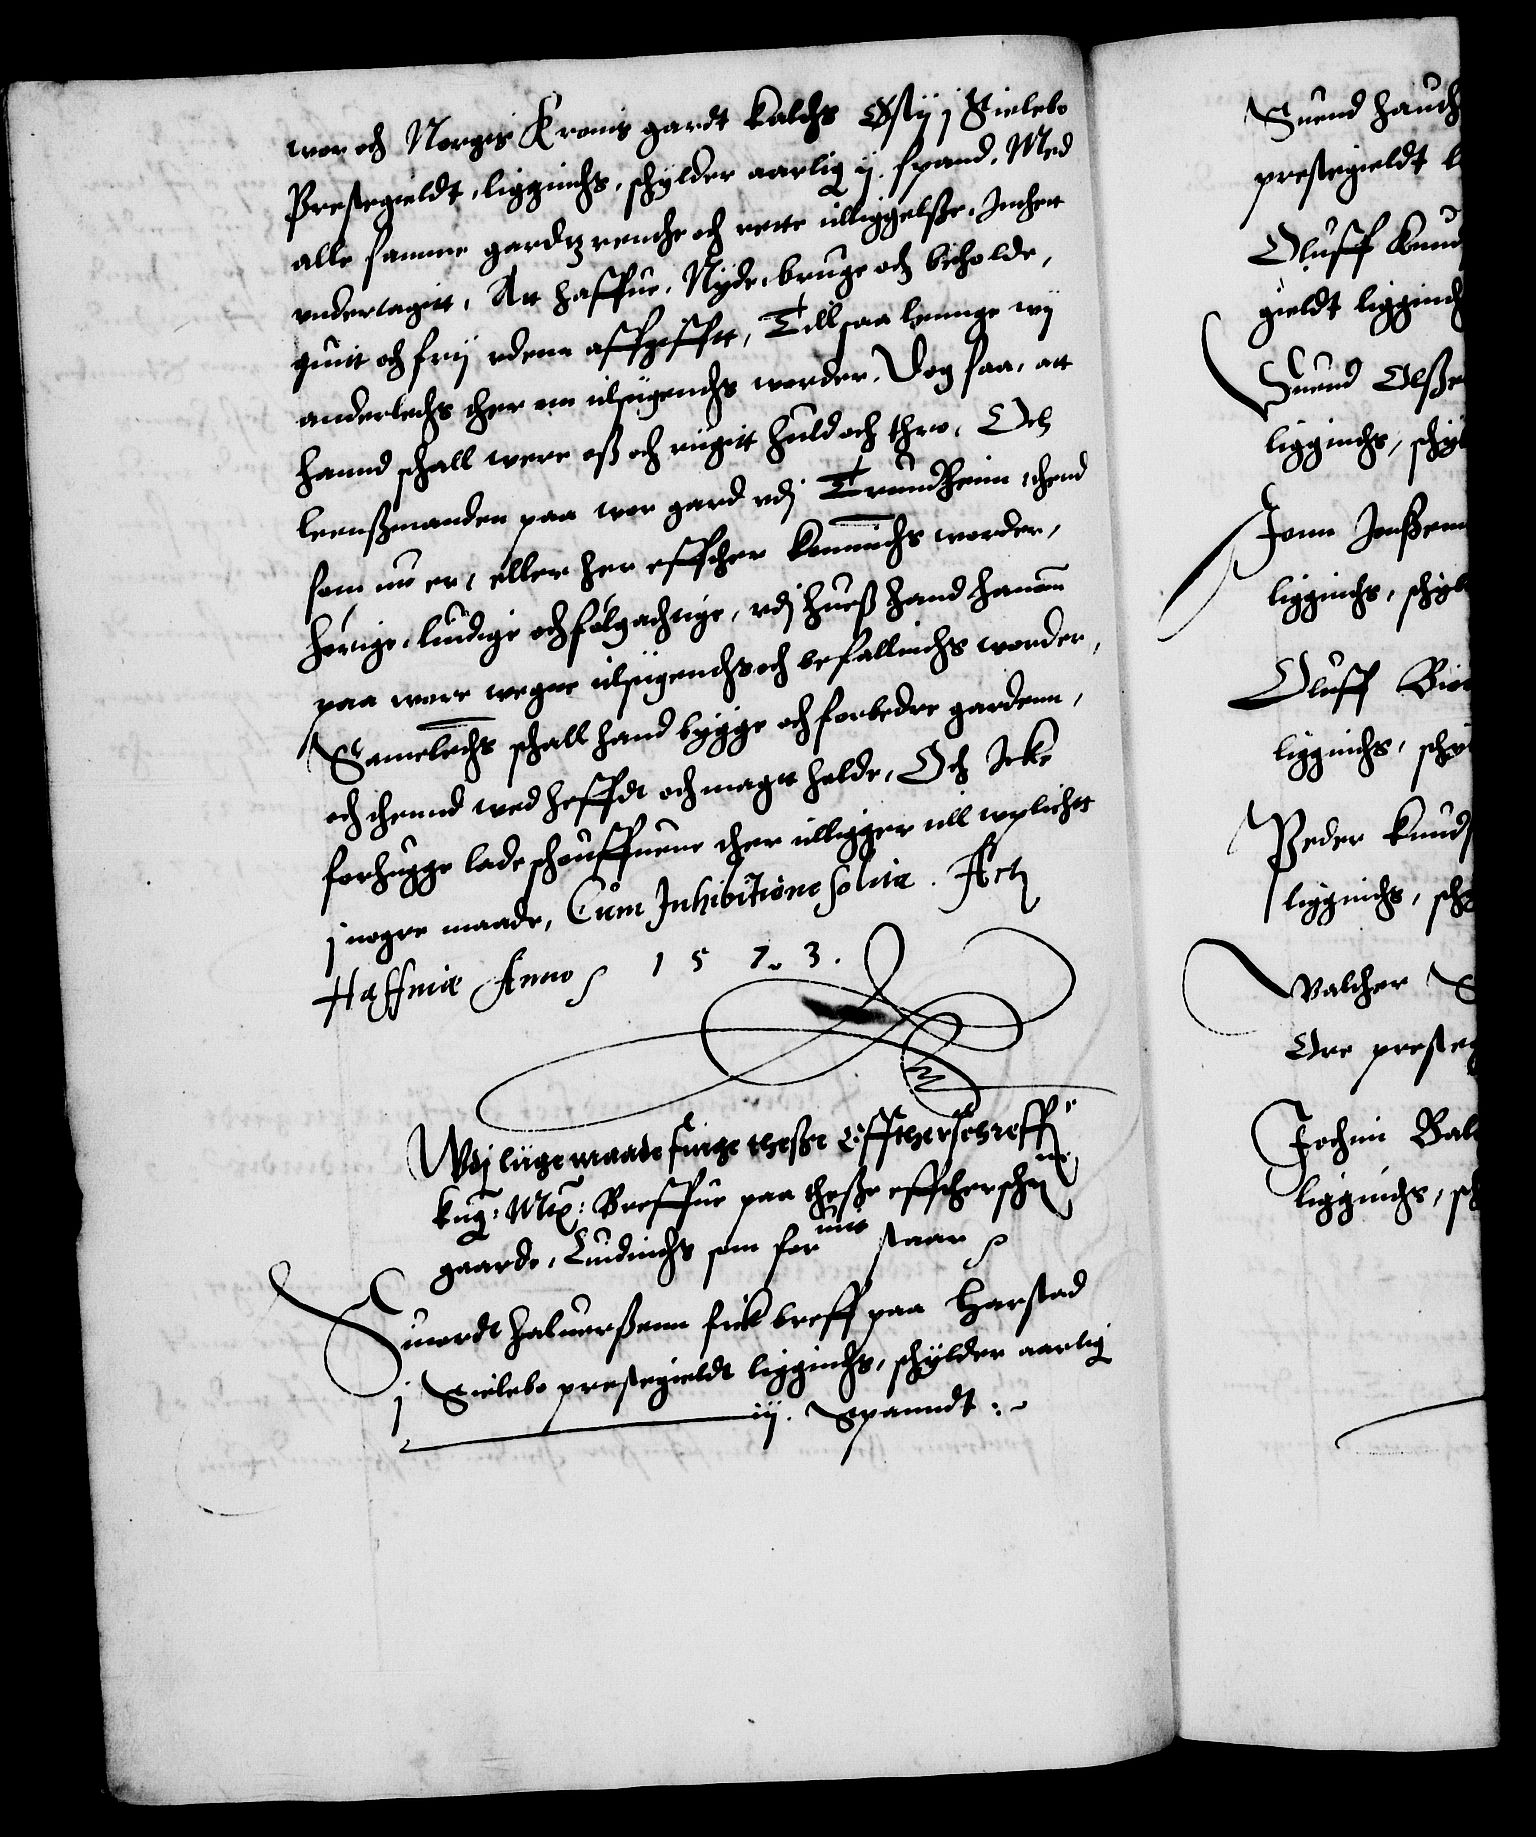 wor och Norgis Kronis gardt kaldes Østij j Sielebo
Prestegieldt, liggindis, schylder aarlig ij. spand. Med
alle samme gardtz rente och rette tilliggelsße, Inthet
undertagitt, Att haffue, Nyde, bruge och beholde,
quitt och frij uden affgifft, Till saa lennge wij
anderledis ther om tilsigendis worder. Dog saa, att
hannd schall were oß och riigitt huld och thro, Och
leenßmanden paa wor gard udj Trundheim, thend
som nu er, eller her effther kommindis worder,
hørige, lindige och følgachtige, udj hueß hand hanom
paa wore wegne tilsigendis och befallindis worder,
Sameledis schall hand bygge och forbedre gardenn,
och thennd wed heffdt och magtt holde, Och Icke
forhugge lade schouffuene ther tilligger till wplicht
j nogre maade, Cum Inhibitione solita. Act
Haffniæ Anno 1573.
Udj liige maade finge theße Efftherschreffne
kng: Mtz: Breffue paa theße effterschne
gaarde, Liudindis som foruitt staar
Siuordt haluorßenn fick breff paa Harstad
j Sielebo prestegieldt liggindis, schylder aarlig
iij. Spanndt:
Suend hauch
prestegieldt l
Oluff knud
gieldt liggind
Suend Olße
liggindis, schyl
Jonn Jonßenn
liggindis, schyl
Oluff Biø
liggindis, schy
Peder knuds
liggindis, sch
Valther S
Øre presteg
Jochim Bal
liggindis, sch